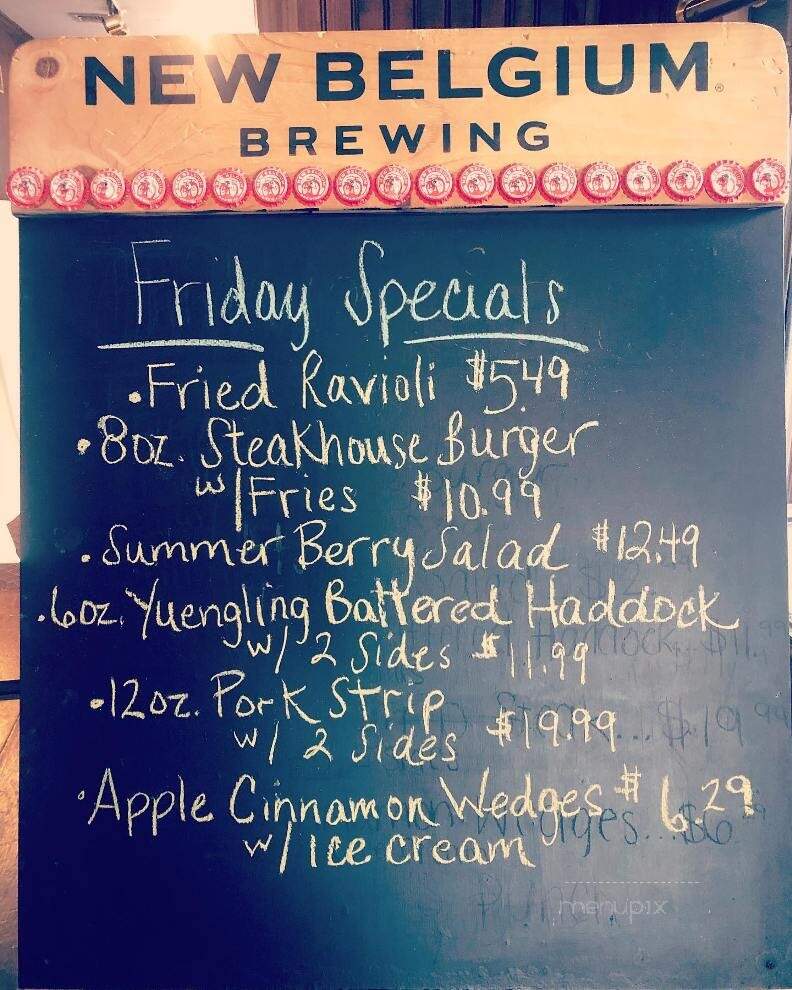 NEW BELGIUM®
BREWING
Friday Specials
• Fried Ravioli $5.49
• 8oz. Steakhouse Burger
w/ Fries $10.99
• Summer Berry Salad $12.49
• 6oz. Yuengling Battered Haddock
w/ 2 Sides $11.99
• 12oz. Pork Strip
w/ 2 Sides $19.99
• Apple Cinnamon Wedges $6.29
w/ Ice cream
menupix